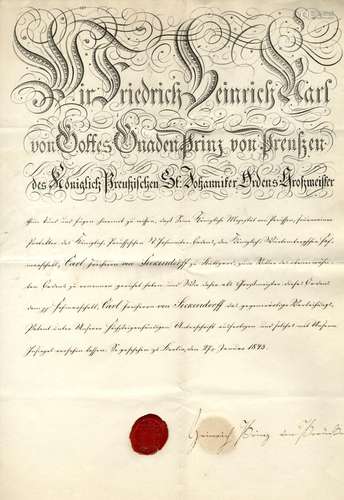 Wir Friedrich Heinrich Karl
von Gottes Gnaden Prinz von Preußen
des Königlich Preußischen St. Johanniter Ordens Großmeister
thun kund und fügen hiermit zu wissen, daß Seine Königliche Majestät von Preußen,
des Königlich Preußischen St Johanniter Ordens, den Königlich Württembergischen Hof-
marschall, Carl Freiherrn von Seckendorff zu Stuttgart zum Ritter des
Orden zu ernennen geruhet haben und Wir daher als Großmeister dieses Ordens
dem Hofmarschall, Carl Freiherrn von Seckendorff das gegenwärtige
Patent unter Unserer Höchsteigenhändigen Unterschrift ausfertigen und solches mit Unserm
Insiegel versehen lassen. So geschehen zu Berlin, den Januar 1843.
Heinrich Prinz von Preußen